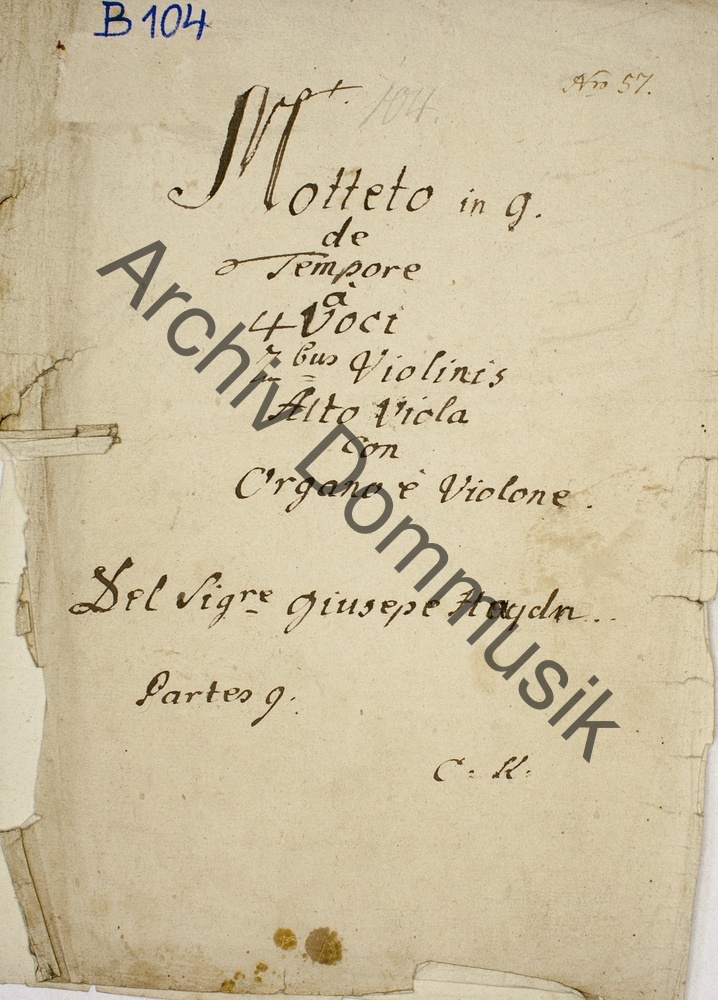 B 104
Nro 57.
104.
Motteto in g.
de
Tempore
à
4 Voci
2bus Violinis
Alto Viola
con
Organo è Violone.
Del Sigre Giusepe Haydn.
Partes 9.
C. K.
Archiv Dommusik